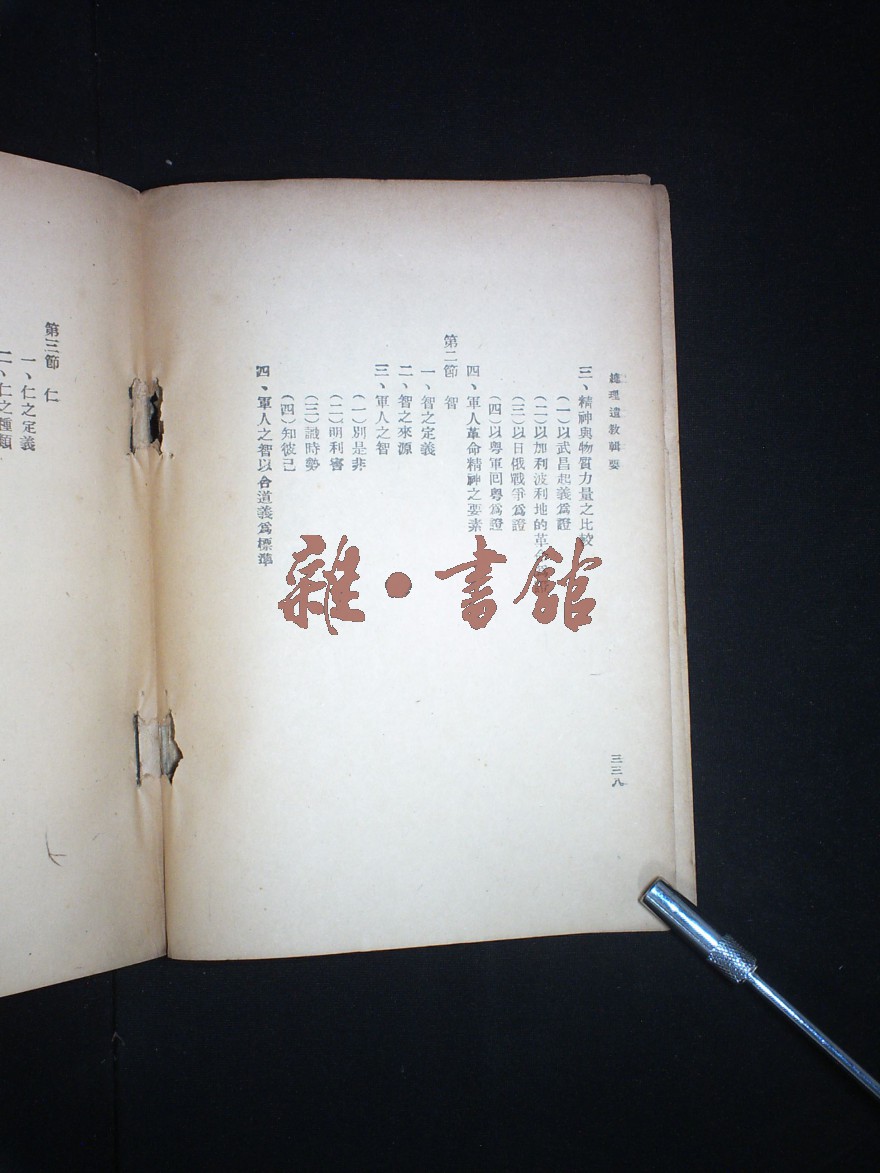 總理遺教輯要
三、精神與物質力量之比較
(一)以武昌起義爲證
(二)以加利波利地的革
(三)以日俄戰爭爲證
(四)以粵軍回粵爲證
四、軍人革命精神之要素
第二節 智
一、智之定義
二、智之來源
三、軍人之智
(一)別是非
(二)明利害
(三)識時勢
(四)知彼己
四、軍人之智以合道義爲標準
三三八
第三節 仁
一、仁之定義
二、仁之種類
雜•書館